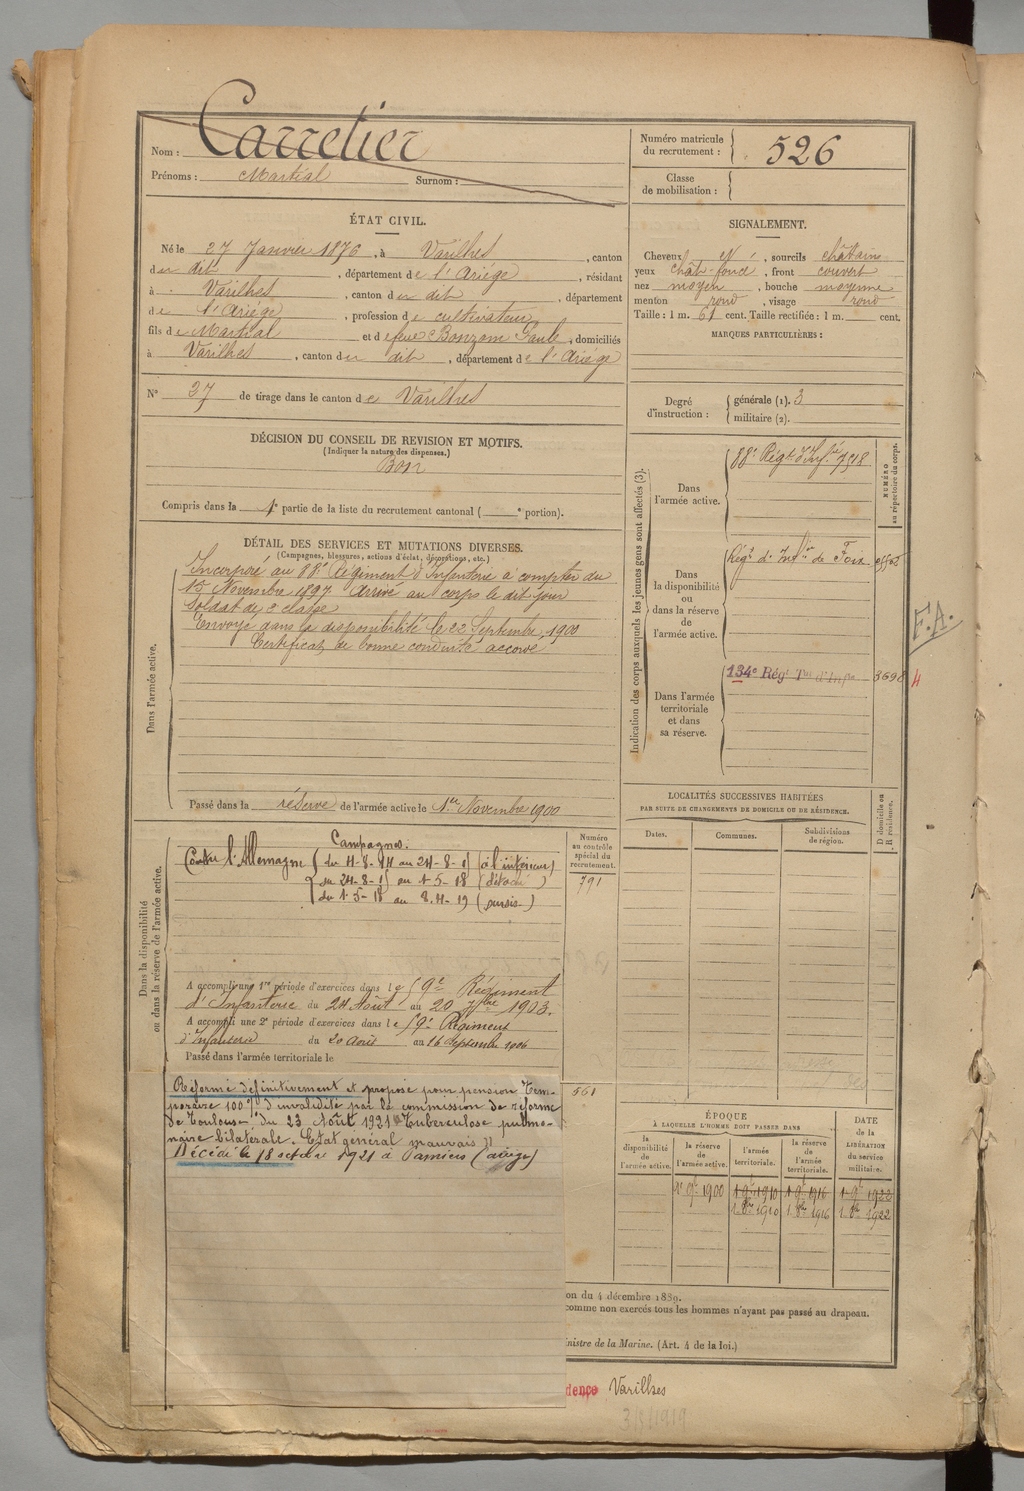 Nom : Carretier
Prénoms : Martial Surnom :
Numéro matricule du recrutement : 526
Classe de mobilisation :
ÉTAT CIVIL.
Né le 27 Janvier 1876, à Varilhes, canton
du dit, département de l'Ariège, résidant
à Varilhes, canton du dit, département
de l'Ariège, profession de cultivateur
fils de Martial et de feue Bonzom Paule, domiciliés
à Varilhes, canton du dit, département de l'Ariège
SIGNALEMENT.
Cheveux N, sourcils châtains
yeux chât-foncé, front couvert
nez moyen, bouche moyenne
menton rond, visage rond
Taille : 1 m. 61 cent. Taille rectifiée : 1 m. cent.
MARQUES PARTICULIÈRES :
N° 37 de tirage dans le canton de Varilhes
Degré d'instruction : générale (1). 3
militaire (2).
DÉCISION DU CONSEIL DE REVISION ET MOTIFS.
(Indiquer la nature des dispenses.)
Bon
Compris dans la 1e partie de la liste du recrutement cantonal ( e portion).
DÉTAIL DES SERVICES ET MUTATIONS DIVERSES.
(Campagnes, blessures, actions d'éclat, décorations, etc.)
Dans l'armée active.
Incorporé au 88e Régiment d'Infanterie à compter du
15 Novembre 1897 Arrivé au corps le dit jour
Soldat de 2e classe
Envoyé dans la disponibilité le 22 Septembre 1900
Certificat de bonne conduite accordé
Passé dans la réserve de l'armée active le 1er Novembre 1900
Indication des corps auxquels les jeunes gens sont affectés (3).
NUMÉRO au répertoire du corps.
Dans l'armée active.
88e Régt d'Infie 7518
Dans la disponibilité ou dans la réserve de l'armée active.
Régt d'Infie de Foix
F.A.
Dans l'armée territoriale et dans sa réserve.
134e Régt Tal d'Infie 3698 4
LOCALITÉS SUCCESSIVES HABITÉES
PAR SUITE DE CHANGEMENTS DE DOMICILE OU DE RÉSIDENCE.
Dates. Communes. Subdivisions de région. D domicile ou R résidence.
Dans la disponibilité ou dans la réserve de l'armée active.
Numéro au contrôle spécial du recrutement.
791
Campagnes.
Contre l'Allemagne du 4-8-14 au 24-8-1 (à l'intérieur)
du 24-8-1 au 1-5-18 (détaché)
du 1-5-18 au 8.4-19 (sursis)
A accompli une 1re période d'exercices dans le 59e Régiment
d'Infanterie du 24 Août au 20 7bre 1903.
A accompli une 2e période d'exercices dans le 59e Régiment
d'Infanterie du 20 Août au 16 Septembre 1906
Passé dans l'armée territoriale le
561
Réformé définitivement et proposé pour pension tem-
poraire 100% d'invalidité par la commission de réforme
de Toulouse du 23 Août 1921 "Tuberculose pulmo-
naire bilatérale. Etat général mauvais"
Décédé le 18 octobre 1921 à Pamiers (ariège)
ÉPOQUE
À LAQUELLE L'HOMME DOIT PASSER DANS
la disponibilité de l'armée active. la réserve de l'armée active. l'armée territoriale. la réserve de l'armée territoriale. DATE de la LIBÉRATION du service militaire.
1900 1910 1916 1922
1. 8bre 1910 1. 8bre 1916 1. 8bre 1922
on du 4 décembre 1889.
comme non exercés tous les hommes n'ayant pas passé au drapeau.
inistre de la Marine. (Art. 4 de la loi.)
dence Varilhes